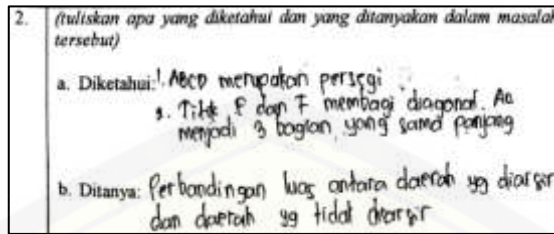 2. (tuliskan apa yang diketahui dan yang ditanyakan dalam masalah
tersebut)
a. Diketahui: 1. ABCD merupakan persegi
2. Titik E dan F membagi diagonal. AC
menjadi 3 bagian yang sama panjang
b. Ditanya: Perbandingan luas antara daerah yg diarsir
dan daerah yg tidak diarsir